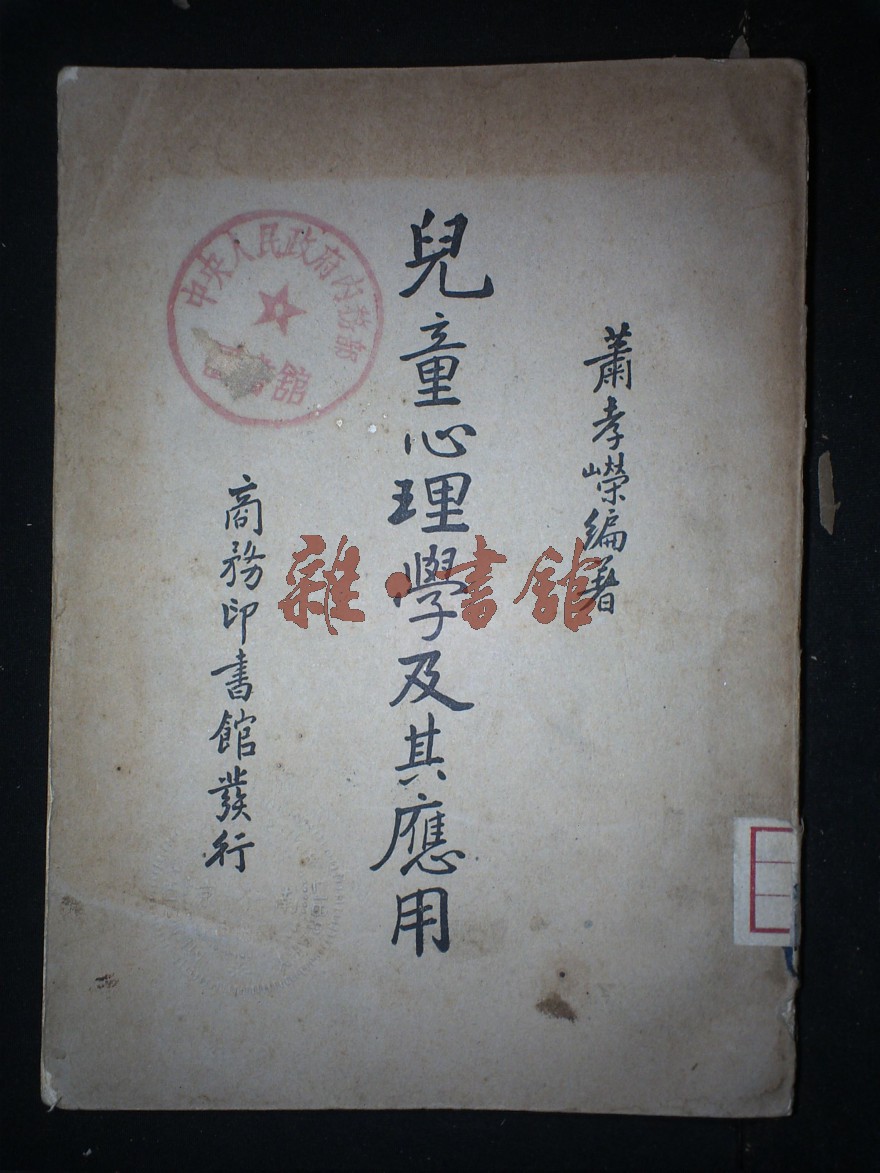 蕭孝嶸編著
兒童心理學及其應用
商務印書館發行
中央人民政府內務部
書館
雜·書館